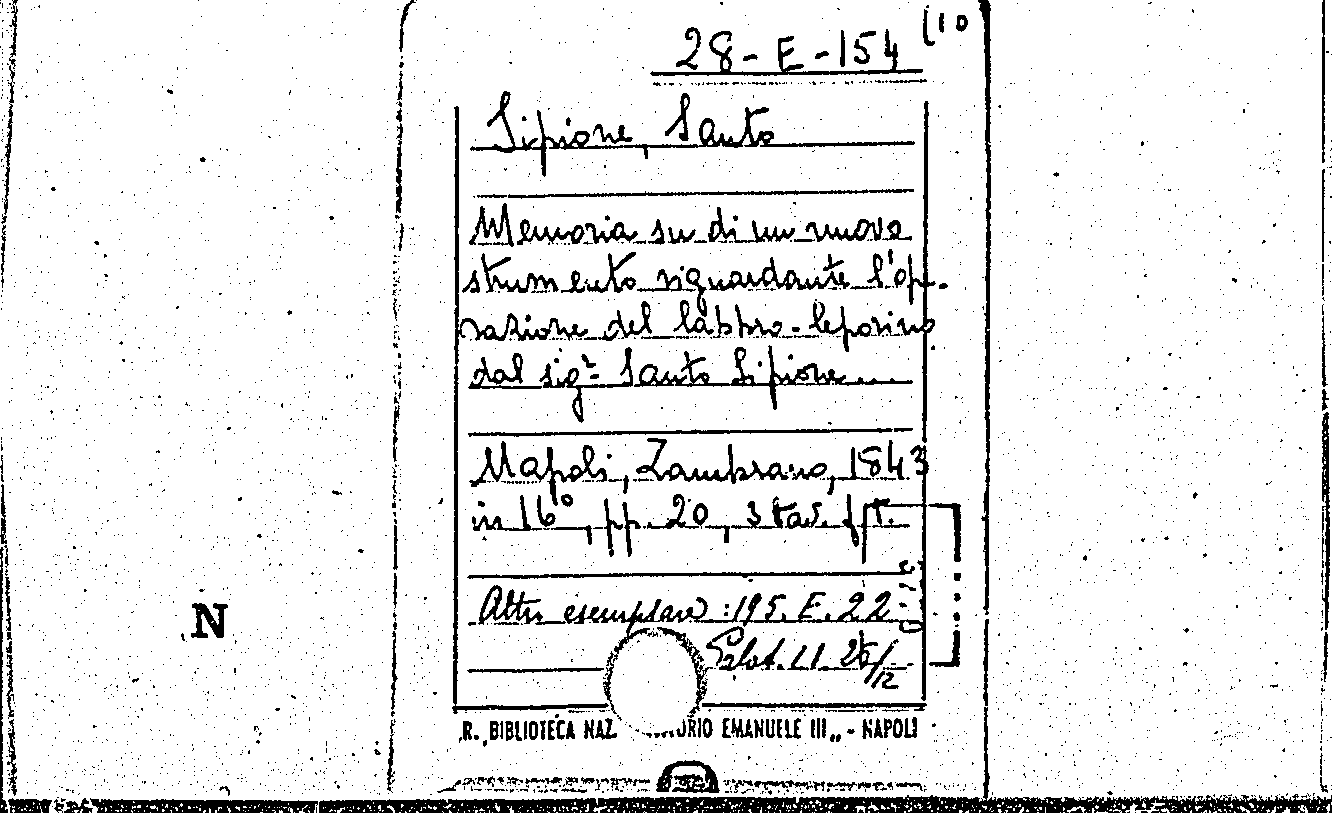 (10
28-E-154
Sipione, Santo
Memoria su di un nuovo
strumento riguardante l'op.
razione del labbro-leporino
dal sigr. Santo Sipione....
Napoli, Zambrano, 1843
in 16°, pp. 20, 3 tav. f.t.
Altro esemplare: 195. E. 22
Palat. LI. 26/12
N
R. BIBLIOTECA NAZ. ORIO EMANUELE III„ - NAPOLI